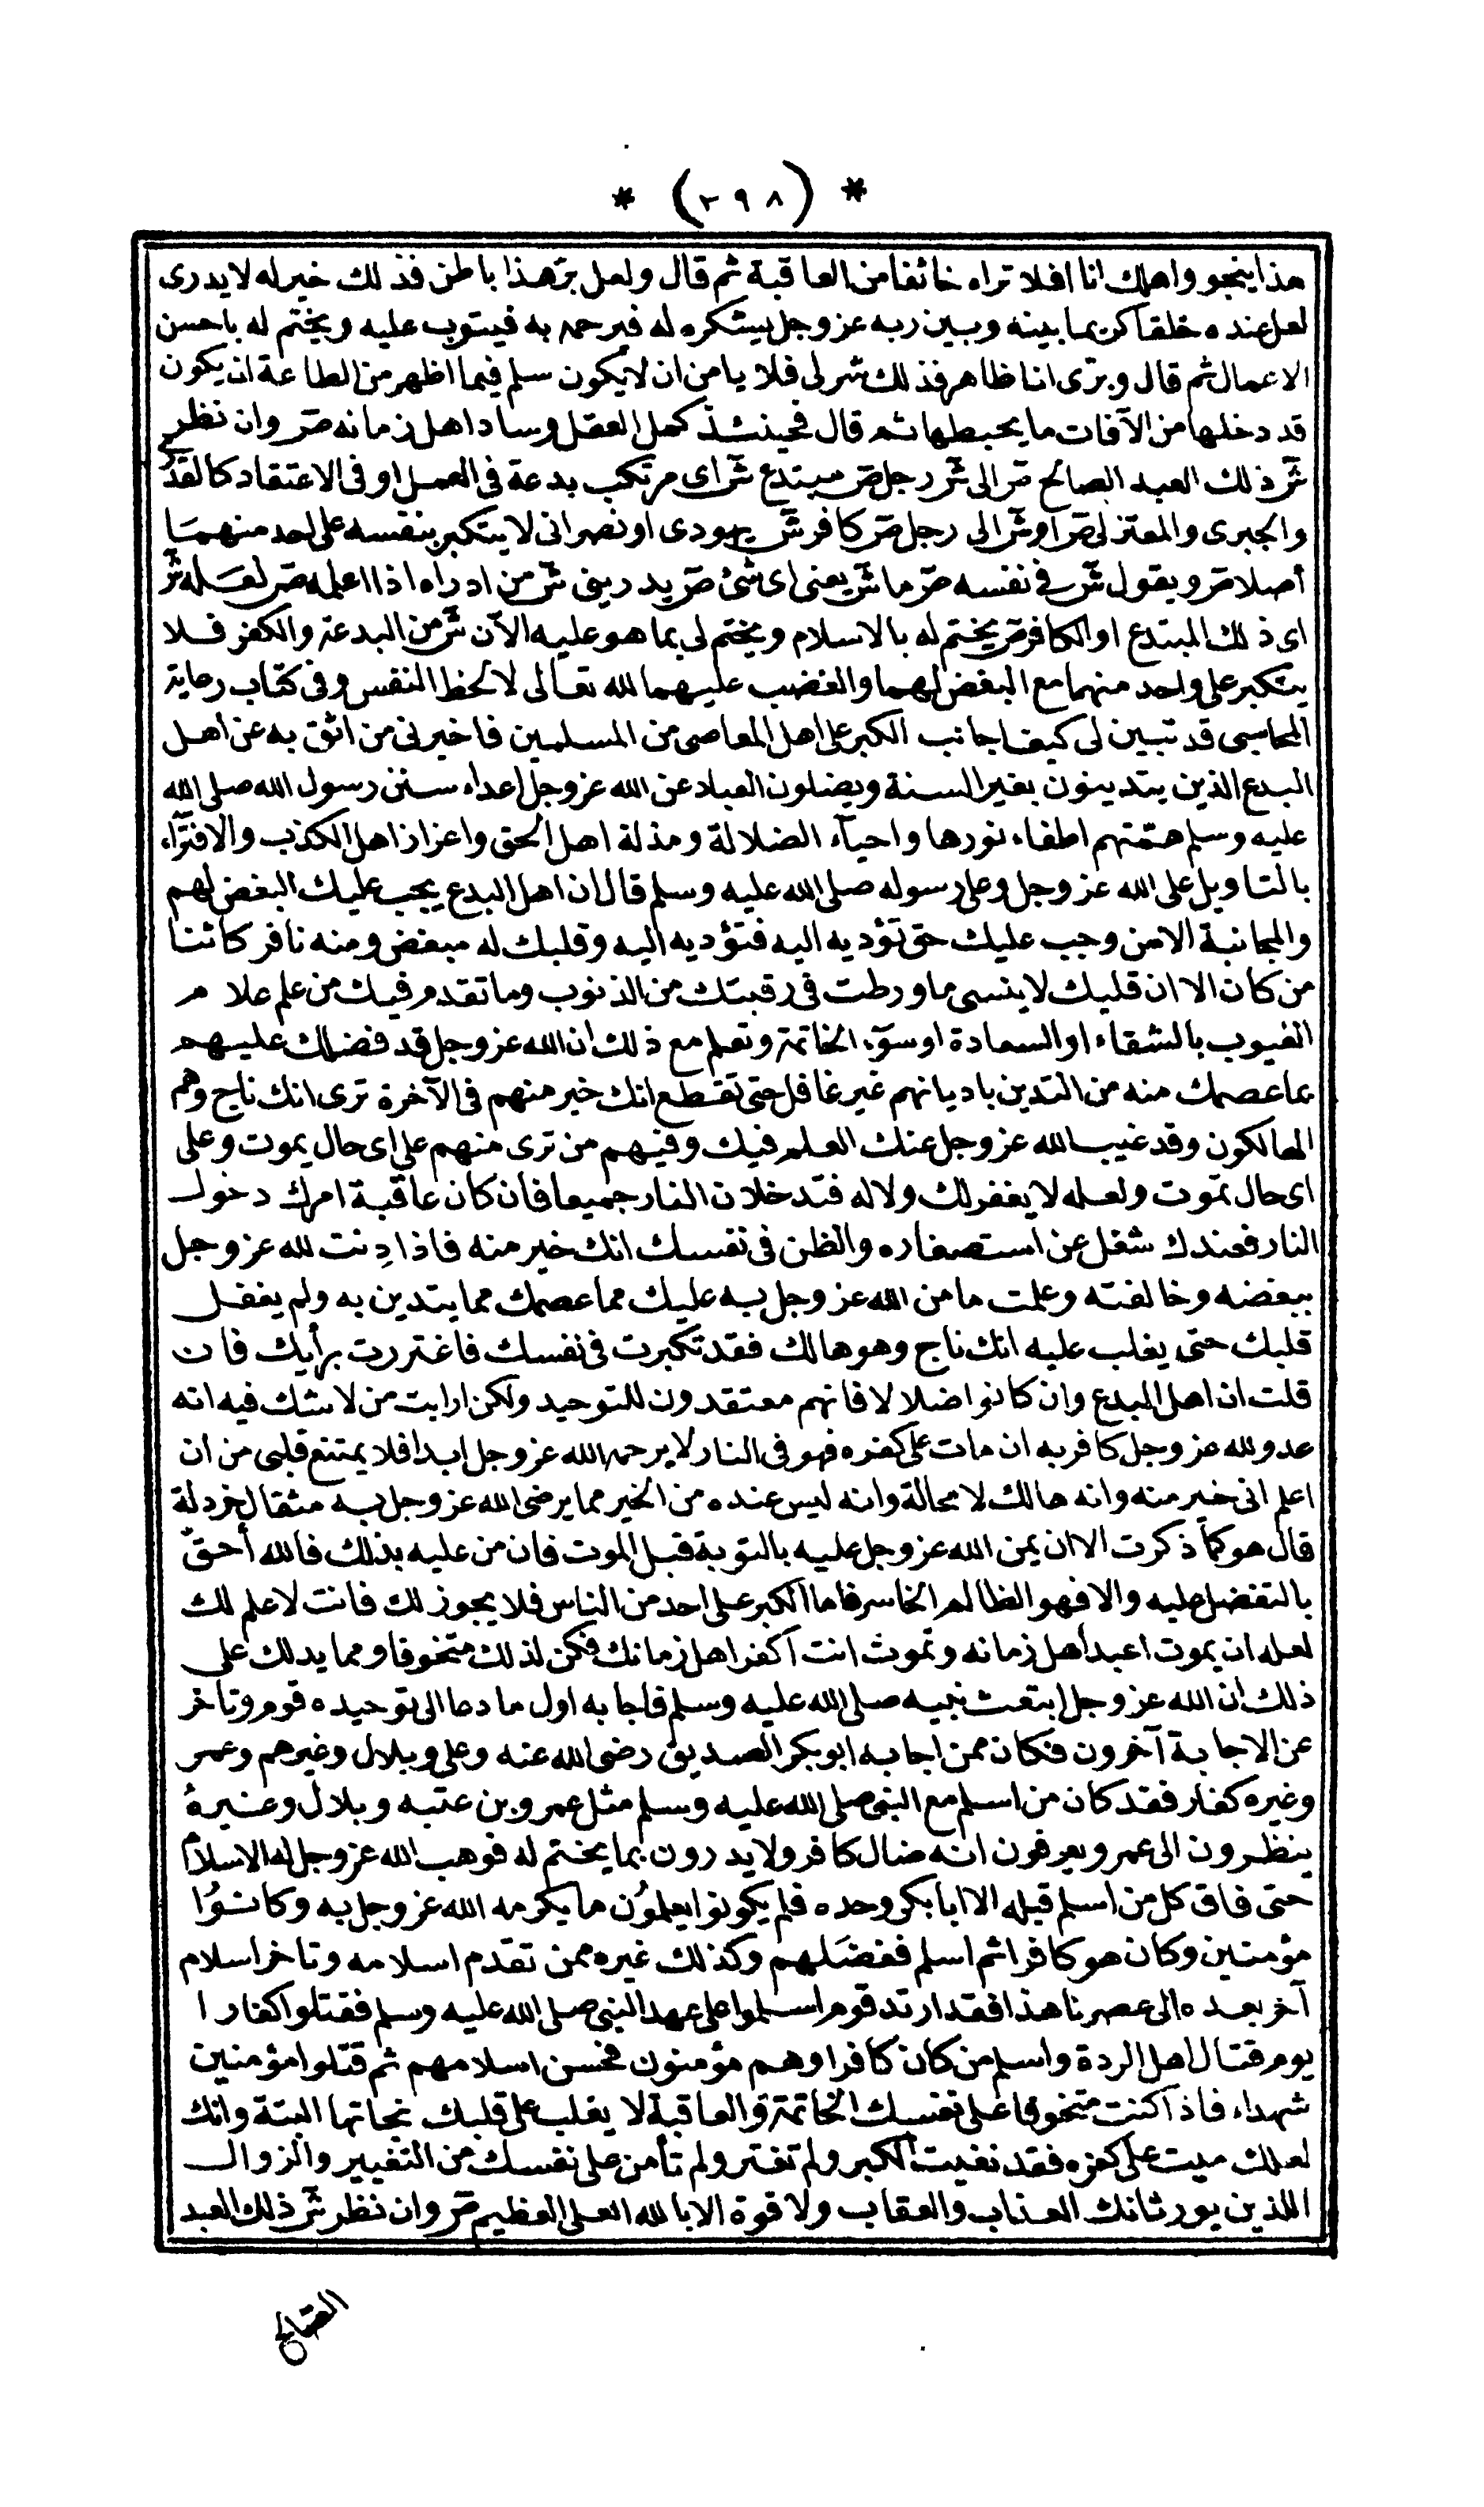 * (٢٩٨) *
هذا ينجو واهلك انا افلا تراه خائفا من العاقبة ثم قال ولعل برّ هذا باطن فذلك خير له لا يدرى
لعل عنده خلقا كريما بينه وبين ربه عز وجل يشكره له فيرحمه به فيتوب عليه ويختم له باحسن
الاعمال ثم قال وبرى انا ظاهر فذلك شر لى فلا يامن ان لا يكون سلم فيما اظهر من الطاعة ان يكون
قد دخلها من الآفات ما يحبطها ثم قال فحينئذ كمل العقل وساد اهل زمانه صر وان نظر
شر ذلك العبد الصالح صر الى شر رجل صر مبتدع شر اى مرتكب بدعة فى العمل او فى الاعتقاد كالقدرى
والجبرى والمعتزلى صر او شر الى رجل صر كافر شر يهودى او نصرانى لا يتكبر بنفسه على احد منهما
أصلا صر ويقول شر فى نفسه صر ما شر يعنى اى شئ صر يدرينى شر من ادراه اذا اعلمه صر لعله شر
اى ذلك المبتدع او الكافر صر يختم له بالاسلام ويختم لى بما هو عليه الآن شر من البدعة والكفر فلا
يتكبر على واحد منهما مع البغض لهما والغضب عليهما لله تعالى لا لحظ النفس وفى كتاب رعاية
المحاسبى قد تبين لى كيف اجانب الكبر على اهل المعاصى من المسلمين فاخبرنى من اثق به عن اهل
البدع الذين يتدينون بغير السنة ويضلون العباد عن الله عز وجل اعداء سنن رسول الله صلى الله
عليه وسلم همّتهم اطفاء نورها واحياء الضلالة ومذلة اهل الحق واعزاز اهل الكذب والافتراء
بالتاويل على الله عز وجل وعلى رسوله صلى الله عليه وسلم قال ان اهل البدع يجب عليك البغض لهم
والمجانبة الا من وجب عليك حق تؤديه اليه فتؤديه اليه وقلبك له مبغض ومنه نافر كائنا
من كان الا ان قلبك لا ينسى ما ورطت فى رقبتك من الذنوب وما تقدم فيك من علم علام
الغيوب بالشقاء او السعادة او سوء الخاتمة وتعلم مع ذلك ان الله عز وجل قد فضلك عليهم
بما عصمك منه من التدين باديانهم غير غافل حتى تقطع انك خير منهم فى الآخرة ترى انك ناج وهم
الهالكون وقد غيب الله عز وجل عنك العلم فيك وفيهم من ترى منهم على اى حال يموت وعلى
اى حال تموت ولعله لا يغفر لك ولا له فتدخلان النار جميعا فان كان عاقبة امرك دخول
النار فعندك شغل عن استصغاره والظن فى نفسك انك خير منه فاذا دِنت لله عز وجل
ببغضه وخالفته وعلمت ما من الله عز وجل به عليك مما عصمك مما يتدين به ولم يغفل
قلبك حتى يغلب عليه انك ناج وهو هالك فقد تكبرت فى نفسك فاغتررت برأيك فان
قلت ان اهل البدع وان كانوا ضلالا فانهم معتقدون للتوحيد ولكن ارايت من لا شك فيه انه
عدو لله عز وجل كافر به ان مات على كفره فهو فى النار لا يرحمه الله عز وجل ابدا فلا يمتنع قلبى من ان
اعلم انى خير منه وانه هالك لا محالة وانه ليس عنده من الخير مما يرضى الله عز وجل به مثقال خردلة
قال هو كما ذكرت الا ان يمن الله عز وجل عليه بالتوبة قبل الموت فان من عليه بذلك فالله أحقّ
بالتفضل عليه والا فهو الظالم الخاسر فاما الكبر على احد من الناس فلا يجوز لك فانت لا علم لك
لعله ان يموت اعبد أهل زمانه وتموت انت اكفر اهل زمانك فكن لذلك متخوفا ومما يدلك على
ذلك ان الله عز وجل ابتعث نبيه صلى الله عليه وسلم فاجابه اول ما دعا الى توحيده قوم وتاخر
عن الاجابة آخرون فكان ممن اجابه ابو بكر الصديق رضى الله عنه وعلى وبلال وغيرهم وعمر
وغيره كفار فقد كان من اسلم مع النبى صلى الله عليه وسلم مثل عمرو بن عتبه وبلال وغيره
ينظرون الى عمر ويعرفون انه ضال كافر ولا يدرون بما يختم له فوهب الله عز وجل له الاسلام
حتى فاق كل من اسلم قبله الا ابا بكر وحده فلم يكونوا يعلمون ما يكرمه الله عز وجل به وكانوا
مؤمنين وكان هو كافرا ثم اسلم ففضلهم وكذلك غيره ممن تقدم اسلامه وتاخر اسلام
آخر بعده الى عصرنا هذا فقد ارتد قوم اسلموا على عهد النبى صلى الله عليه وسلم فقتلوا كفارا
يوم قتال اهل الردة واسلم من كان كافرا وهم مؤمنون فحسن اسلامهم ثم قتلوا مؤمنين
شهداء فاذا كنت متخوفا على نفسك الخاتمة والعاقبة لا يغلب على قلبك نجاتها البتة وانك
لعلك ميت على كفره فقد نفيت الكبر ولم تغتر ولم تأمن على نفسك من التغيير والزوال
اللذين يورثانك العذاب والعقاب ولا قوة الا بالله العلى العظيم صر وان نظر شر ذلك العبد
الصالح